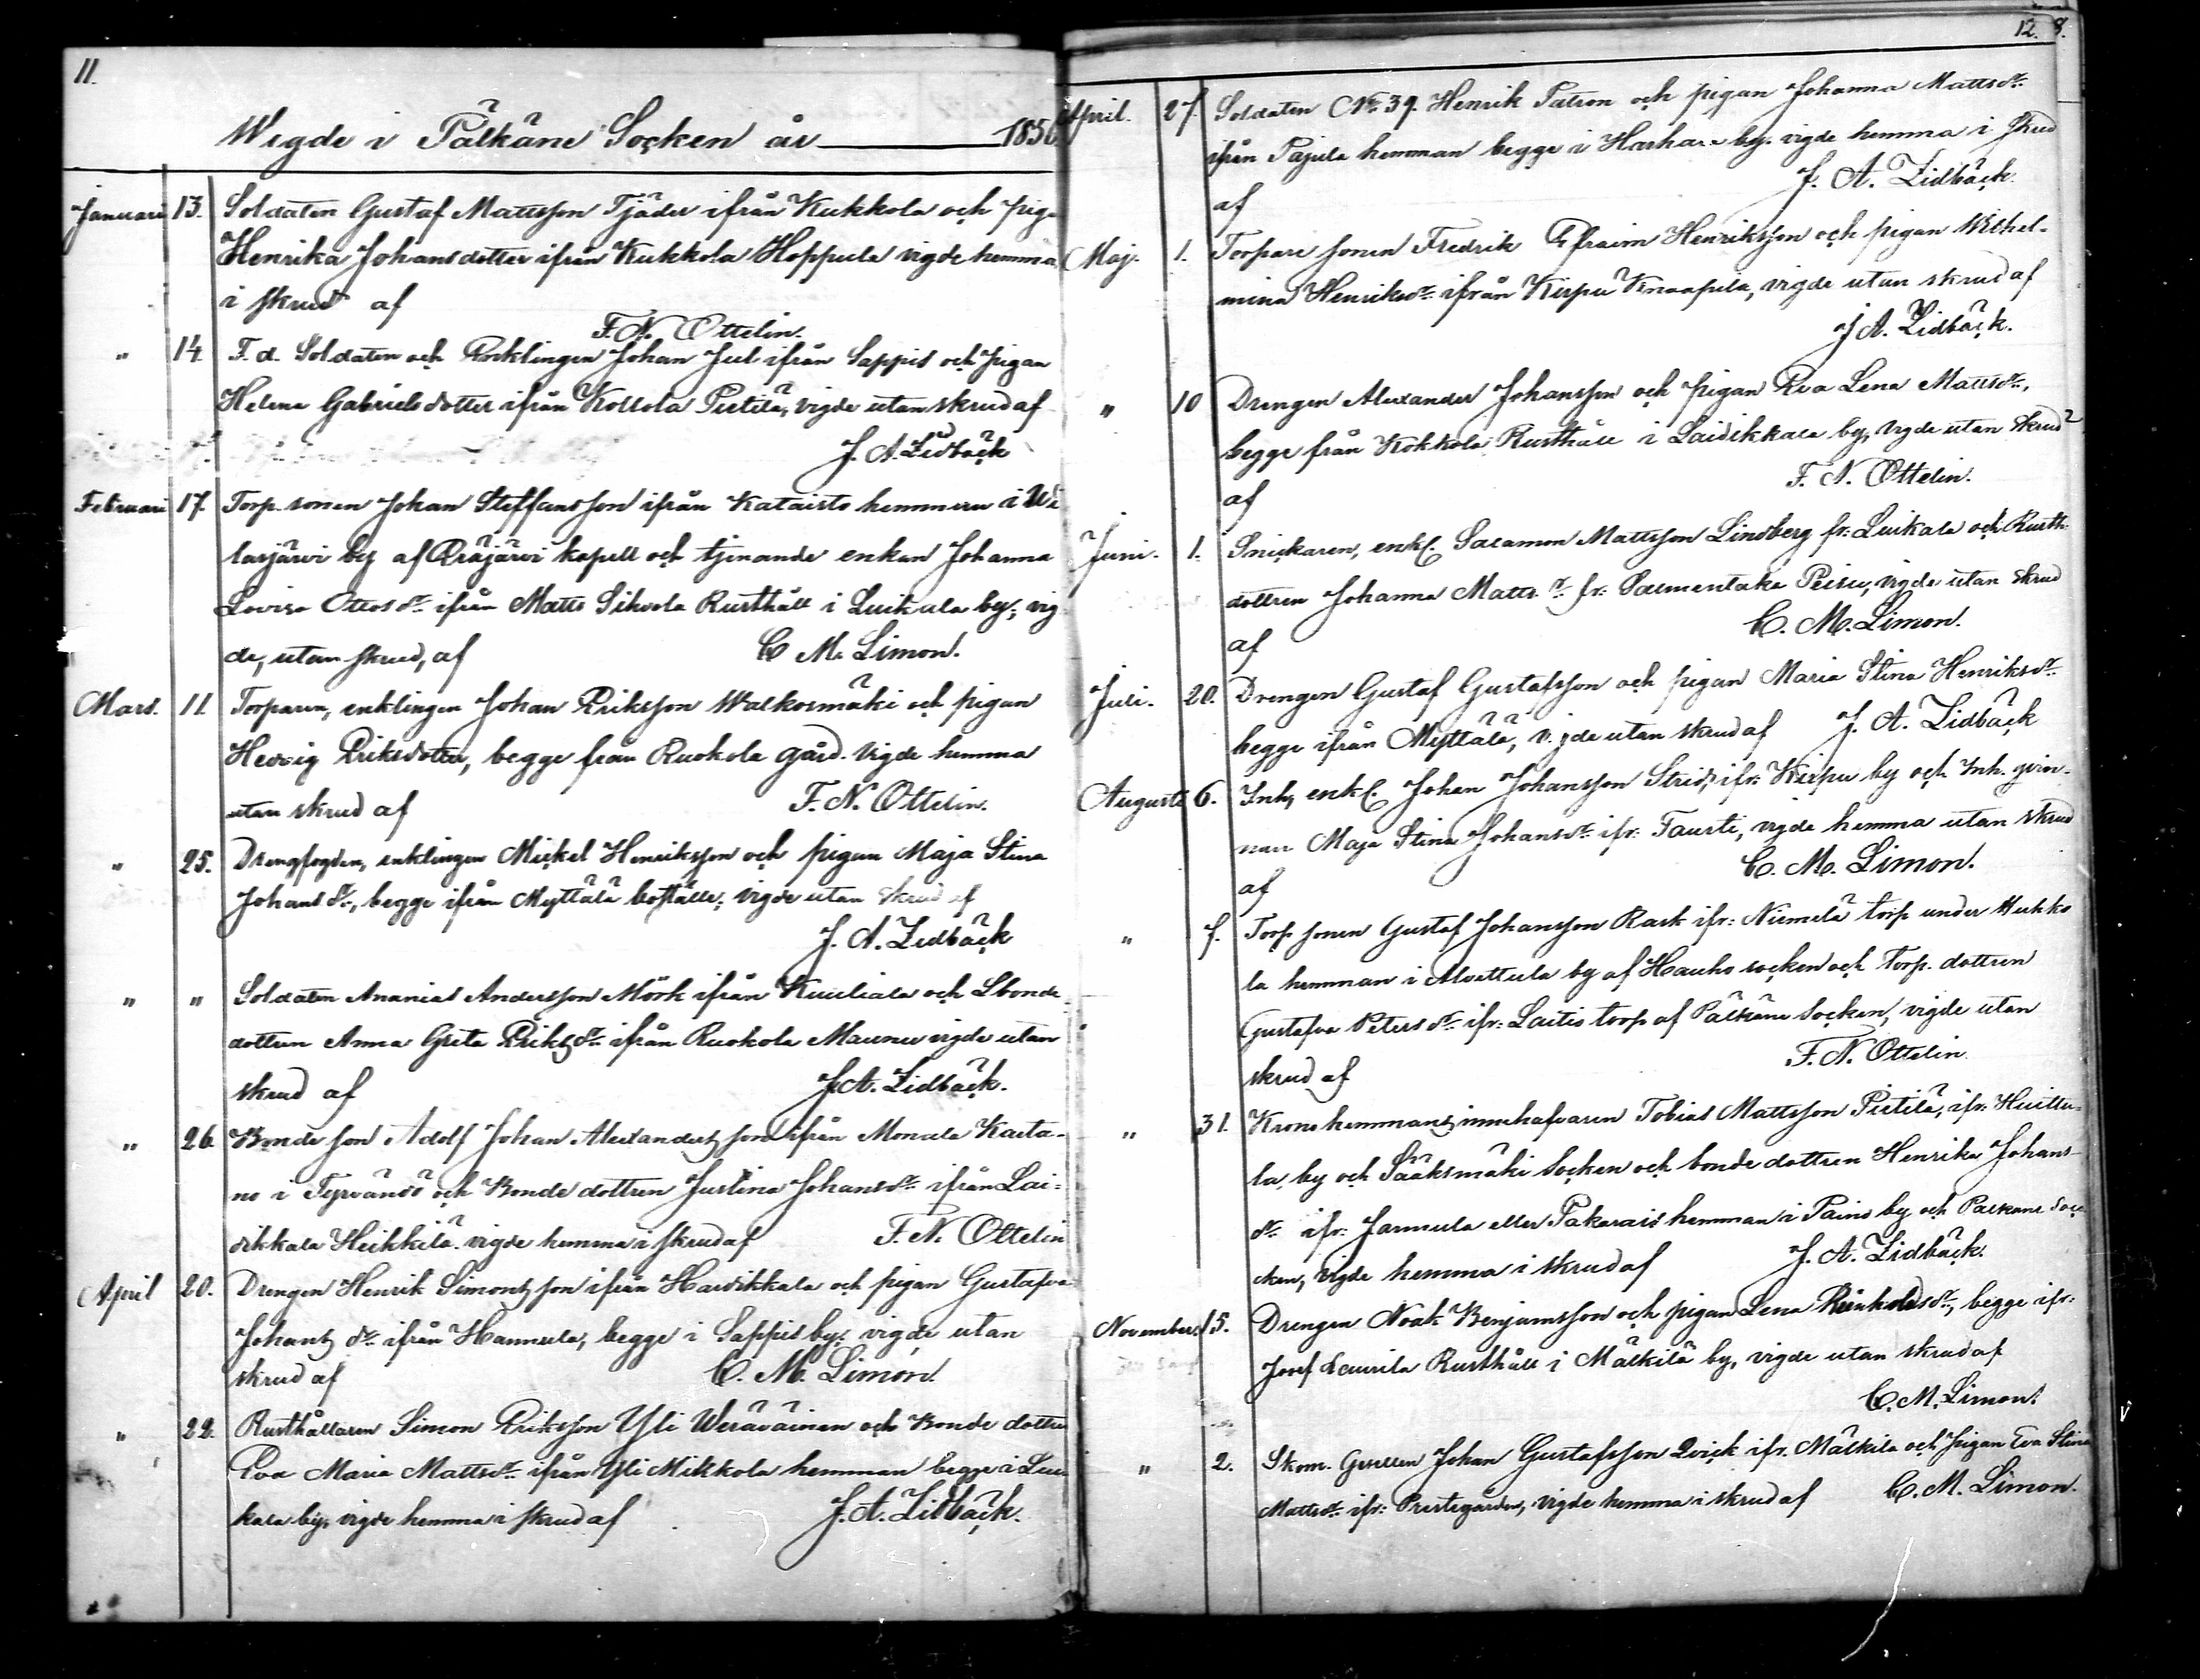 11.
Wigde i Pälkäne Socken år 1856
Januari 13. Soldaten Gustaf Mattsson Tjäder ifrån Kukkola och pig
Henrika Johansdotter ifrån Kukkola Hoppula vigde hemma
i skrud af
F. N. Ottelin.
" 14. F. d. Soldaten och Enklingen Johan Jul ifrån Sappis och Pigan
Helena Gabrielsdotter ifrån Kollola Pietilä, vigde utan skrud af
J. A. Lidbäck
Februari 17. Torp. sonen Johan Steffansson ifrån Kataisto hemman i Wi
lasjärvi by af Eräjärvi kapell och tjenande enkan Johanna
Lovisa Ottosdr ifrån Matts Sihvola Rusthåll i Luikala by; vig
de, utan skrud, af C. M. Limon.
Mars. 11. Torparen, enklingen Johan Eriksson Walkosmäki och pigan
Hedvig Eriksdotter, begge från Ruokola gård. Vigde hemma
utan skrud af F. N. Ottelin.
" 25. Drengfogden, enklingen Mickel Henriksson och pigan Maja Stina
Johansdr, begge ifrån Myttälä boställe; vigde utan skrud af
J. A. Lidbäck
" " Soldaten Ananias Andersson Mörk ifrån Kuuliala och Lbonde
dottren Anna Greta Eriksdr ifrån Ruokola Maunu vigde utan
skrud af J. A. Lidbäck.
" 26. Bonde son Adolf Johan Alexanderson ifrån Monala Karta-
no i Tyrvändö och Bonde dottren Justina Johansdr ifrån Lai-
dikkala Heikkilä. vigde hemma i skrud af F. N. Ottelin
April 20. Drengen Henrik Simonsson ifrån Haidikkala och pigan Gustafva
Johansdr ifrån Hannula, begge i Sappis by; vigde, utan
skrud af C. M. Limon.
" 22. Rusthållaren Simon Eriksson Yli Weräväinen och Bonde dottre
Eva Maria Mattsdr ifrån Yli Mikkola hemman begge i Lui
kala by, vigde hemma i skrud af J. A. Lidbäck.
12. 8.
April. 27. Soldaten No 39. Henrik Patron och pigan Johanna Mattsdr
ifrån Pajula hemman begge i Harhala by. vigde hemma i skrud
af J. A. Lidbäck.
Maj. 1. Torpare sonen Fredrik Efraim Henriksson och pigan Wilhel-
mina Henriksdr ifrån Kirpu Knaapila, vigde utan skrud af
J. A. Lidbäck.
" 10 Drengen Alexander Johansson och pigan Eva Lena Mattsdr,
begge från Kokkola Rusthåll i Laidikkala by, vigde utan skrud
af F. N. Ottelin.
Juni. 1. Snickaren, enkl. Salamon Mattsson Lindberg fr. Luikala och Rusth.
dottren Johanna Mattsdr fr: Salmentaka Peisu, vigde utan skrud
af C. M. Limon.
Juli. 20. Drengen Gustaf Gustafsson och pigan Maria Stina Henriksdr
begge ifrån Myttälä, vigde utan skrud af J. A. Lidbäck
Augusti 6. Inh, enkl. Johan Johansson Strid, ifr. Kirpu by och Inh. qvin-
nan Maja Stina Johansdr ifr: Tausti, vigde hemma utan skrud
af C. M. Limon.
" Torp sonen Gustaf Johansson Rask ifr: Niemelä torp under Uukko
la hemman i Alvettula by af Hauho socken och Torp. dottren
Gustafva Petersdr ifr: Laitis torp af Pälkäne Socken, vigde utan
skrud af F. N. Ottelin.
" 31. Kronohemmans innehafvaren Tobias Mattsson Pietilä, ifr. Huittu-
la, by och Sääksmäki Socken och bonde dottren Henrika Johans-
dr ifr: Jammula eller Pakarais hemman i Paino by och Pälkäne Soc
cken, vigde hemma i skrud af J. A. Lidbäck.
November. 15. Drengen Noak Benjamsson och pigan Lena Reinholdsdr, begge ifr:
Josef Laurila Rusthåll i Mälkilä by, vigde utan skrud af
C. M. Limon.
" 2. Skom. Gesellen Johan Gustafsson Qvick ifr. Mälkilä och Pigan Eva Stina
Mattsdr ifr: Prestegården, vigde hemma i skrud af C. M. Limon.